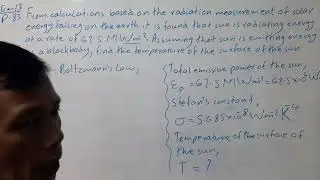 Em-13
P-83
From calculations based on the radiation measurement of solar
energy falling on the earth it is found that sun is radiating energy
at a rate of 67.5 MWm⁻². Assuming that sun is emitting energy
a blackbody, find the temperature of the surface of the sun
Boltzmann's Law,
Total emissive power of the sun,
= 67.5 MWm⁻² = 67.5×10
Stefan's constant,
σ = 5.685×10⁻⁸ Wm⁻² K⁻⁴
Temperature of the surface of
the sun,
T = ?